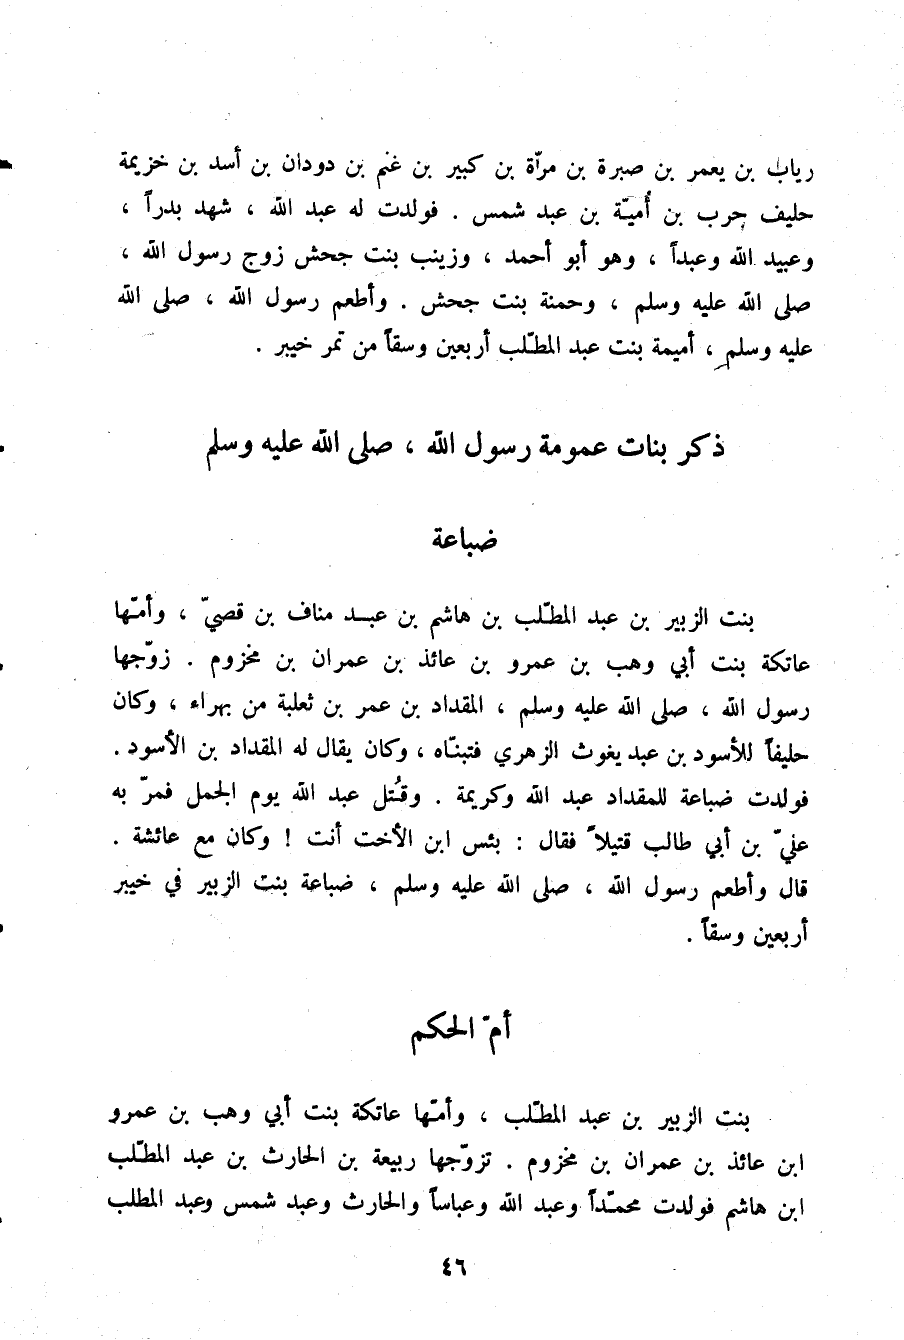 رياب بن يعمر بن صبرة بن مرّة بن كبير بن غنم بن دودان بن أسد بن خزيمة
حليف حرب بن أُميّة بن عبد شمس . فولدت له عبد الله ، شهد بدراً ،
وعبيد الله وعبداً ، وهو أبو أحمد ، وزينب بنت جحش زوج رسول الله ،
صلى الله عليه وسلم ، وحمنة بنت جحش . وأطعم رسول الله ، صلى الله
عليه وسلم ، أميمة بنت عبد المطّلب أربعين وسقاً من تمر خيبر .
ذكر بنات عمومة رسول الله ، صلى الله عليه وسلم
ضباعة
بنت الزبير بن عبد المطّلب بن هاشم بن عبد مناف بن قصيّ ، وأمّها
عاتكة بنت أبي وهب بن عمرو بن عائذ بن عمران بن مخزوم . زوّجها
رسول الله ، صلى الله عليه وسلم ، المقداد بن عمر بن ثعلبة من بهراء ، وكان
حليفاً للأسود بن عبد يغوث الزهري فتبنّاه ، وكان يقال له المقداد بن الأسود .
فولدت ضباعة للمقداد عبد الله وكريمة . وقُتل عبد الله يوم الجمل فمرّ به
عليّ بن أبي طالب قتيلاً فقال : بئس ابن الأخت أنت ! وكان مع عائشة .
قال وأطعم رسول الله ، صلى الله عليه وسلم ، ضباعة بنت الزبير في خيبر
أربعين وسقاً .
أمّ الحكم
بنت الزبير بن عبد المطّلب ، وأمّها عاتكة بنت أبي وهب بن عمرو
ابن عائذ بن عمران بن مخزوم . تزوّجها ربيعة بن الحارث بن عبد المطّلب
ابن هاشم فولدت محمّداً وعبد الله وعباساً والحارث وعبد شمس وعبد المطلب
٤٦